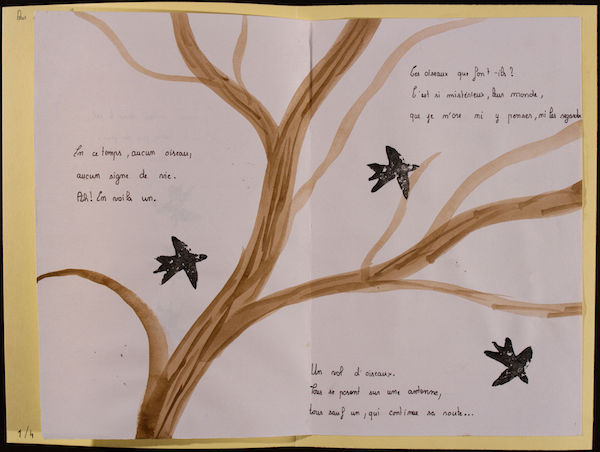 En ce temps, aucun oiseau,
aucun signe de vie.
Ah! En voilà un.
Ces oiseaux que font-ils?
C'est si mistérieux, leurs monde,
que je n'ose ni y penser, ni les regarder
Un vol d'oiseaux.
Tous se posent sur une antenne,
tous sauf un, qui continue sa route...
1/4